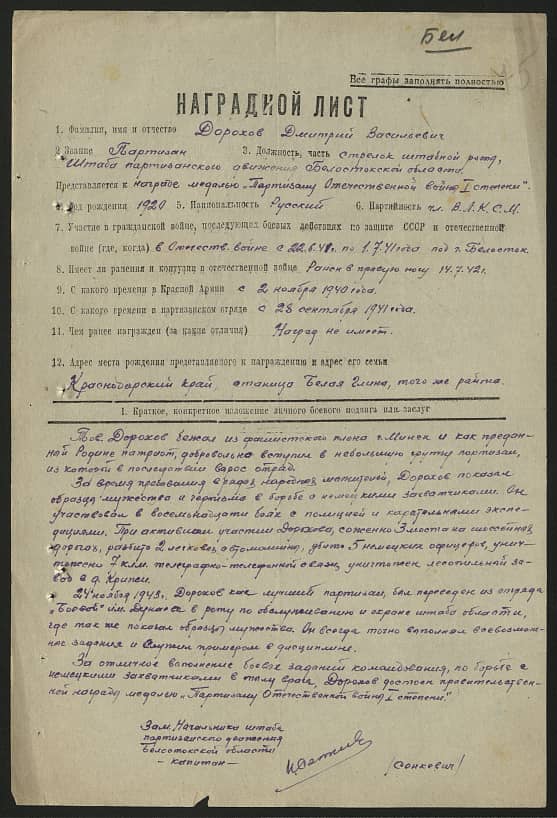 Бел
Все графы заполнять полностью
НАГРАДНОЙ ЛИСТ
1. Фамилия, имя и отчество Дорохов Дмитрий Васильевич
2 Звание Партизан 3. Должность, часть стрелок штабной роты,
Штаба партизанского движения Белостокской области.
Представляется к награде медалью „Партизану Отечественной войны I степени".
4. Год рождения 1920 5. Национальность Русский 6. Партийность чл. В.Л.К.С.М.
7. Участие в гражданской войне, последующих боевых действиях по защите СССР и отечественной
войне (где, когда) в Отечеств. войне с 22.6.41г. по 1.7.41 года под г. Белосток.
8. Имеет ли ранения и контузии в отечественной войне Ранен в правую ногу 14.7.42г.
9. С какого времени в Красной Армии с 2 ноября 1940 года.
10. С какого времени в партизанском отряде с 28 сентября 1941 года.
11. Чем ранее награжден (за какие отличия) Наград не имеет.
12. Адрес места рождения представляемого к награждению и адрес его семьи
Краснодарский край, станица Белая Глина, того же района.
I. Краткое, конкретное изложение личного боевого подвига или заслуг
Тов. Дорохов бежал из фашистского плена г. Минск и как предан-
ной Родине патриот, добровольно вступил в небольшую группу партизан,
из которой в последствии вырос отряд.
За время пребывания в рядах народных мстителей, Дорохов показал
образцы мужества и героизма в борьбе с немецкими захватчиками. Он
участвовал в восемнадцати боях с полицией и карательными экспе-
дициями. При активном участии Дорохова, соженно 3 моста на шоссейных
дорогах, разбито 2 легковых автомашины, убито 5 немецких офицеров, унич-
тожено 7 клм. телеграфно-телефонной связи, уничтожен лесопильный за-
вод в д.
24 ноября 1943г. Дорохов как лучший партизан, был переведен из отряда
„Боевой" им. Дунаева в роту по обслуживанию и охране штаба области,
где так же показал образцы мужества. Он всегда точно выполнял всевозмож-
ные задания и служил примером в дисциплине.
За отличное выполнение боевых заданий командования, по борьбе с
немецкими захватчиками в тылу врага, Дорохов достоен правительствен-
ной награды медалью „Партизану Отечественной войны I степени."
Зам. Начальника штаба
партизанского движения
Белостокской области
- капитан -
(Сонкевич)